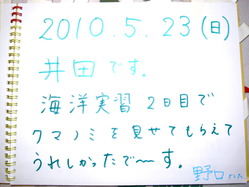 2010.5.23(日)
井田です。
海洋実習 2日目で
クマノミを見せてもらえて
うれしかったで〜す。
野口